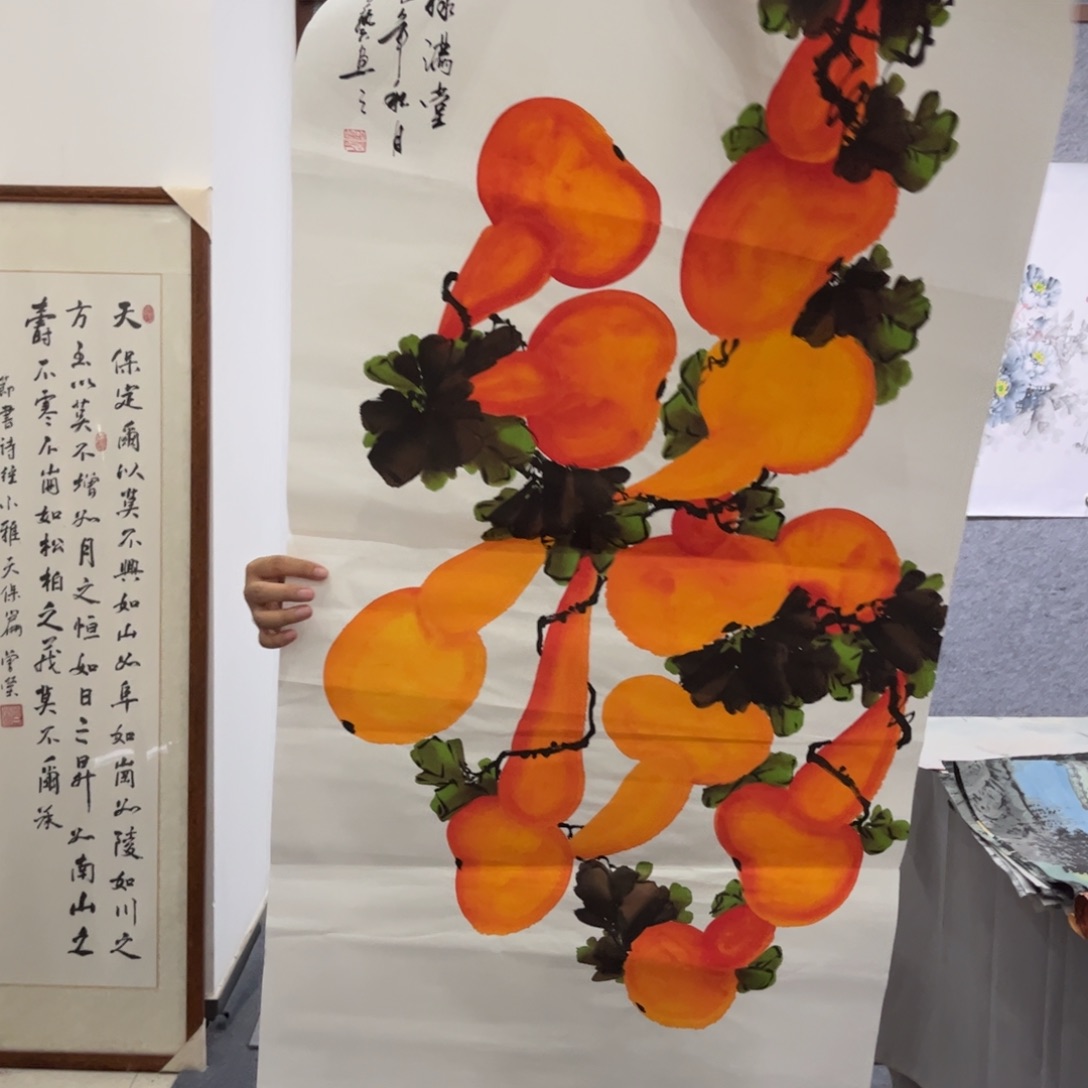 禄滿堂
年秋月
天保定爾以莫不興如山如阜如崗如陵如川之
方至以莫不增如月之恒如日之昇如南山之
壽不寒不崩如松柏之茂莫不爾承
節書诗经小雅天保篇